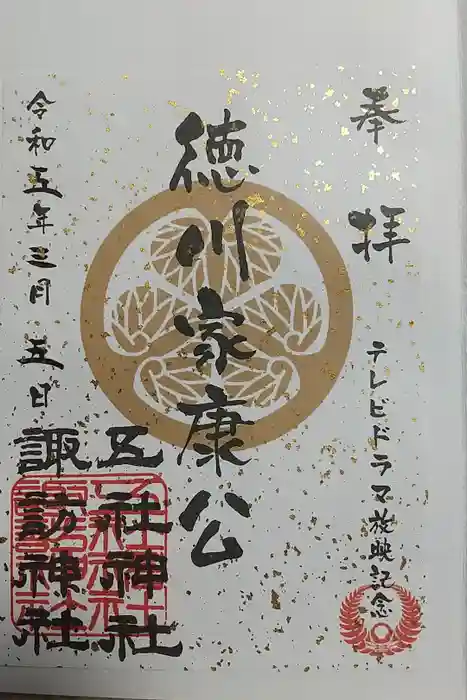 奉拝
テレビドラマ放映記念
徳川家康公
五社神社
諏訪神社
令和五年三月五日